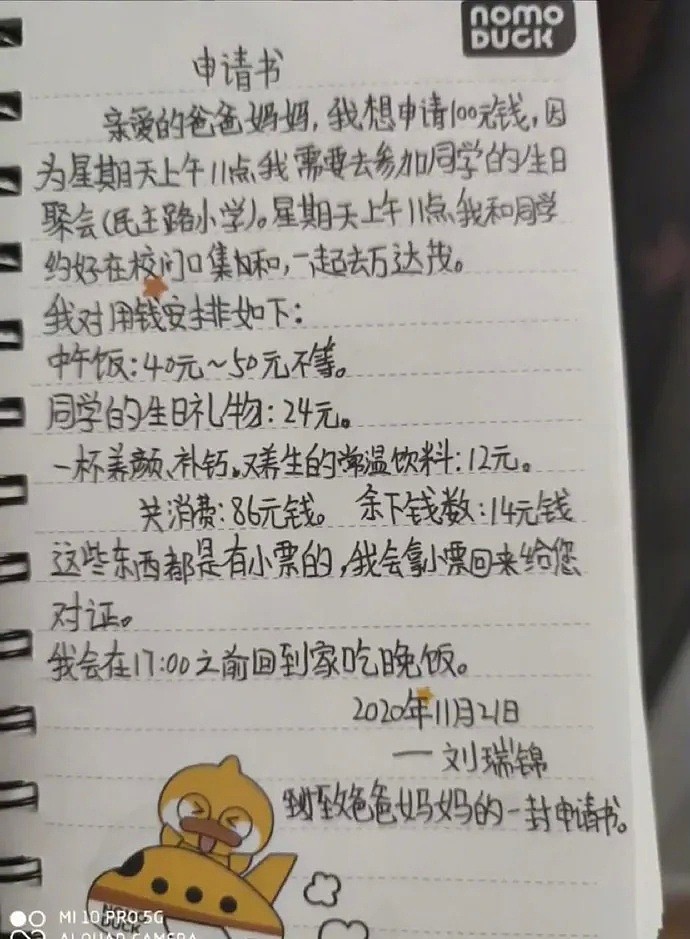 NOMO
DUCK
申请书
亲爱的爸爸妈妈，我想申请100元钱，因
为星期天上午11点我需要去参加同学的生日
聚会(民主路小学)。星期天上午11点我和同学
约好在校门口集和，一起去万达茂。
我对用钱安排如下：
中午饭：40元~50元不等。
同学的生日礼物：24元。
一杯养颜、补钙、又养生的常温饮料：12元。
共消费：86元钱。 余下钱数：14元钱
这些东西都是有小票的，我会拿小票回来给您
对证。
我会在17:00之前回到家吃晚饭。
2020年11月21日
一刘瑞锦
致爸爸妈妈的一封申请书。
NOMO
DUCK
MI 10 PRO 5G
AI QUAD CAMERA